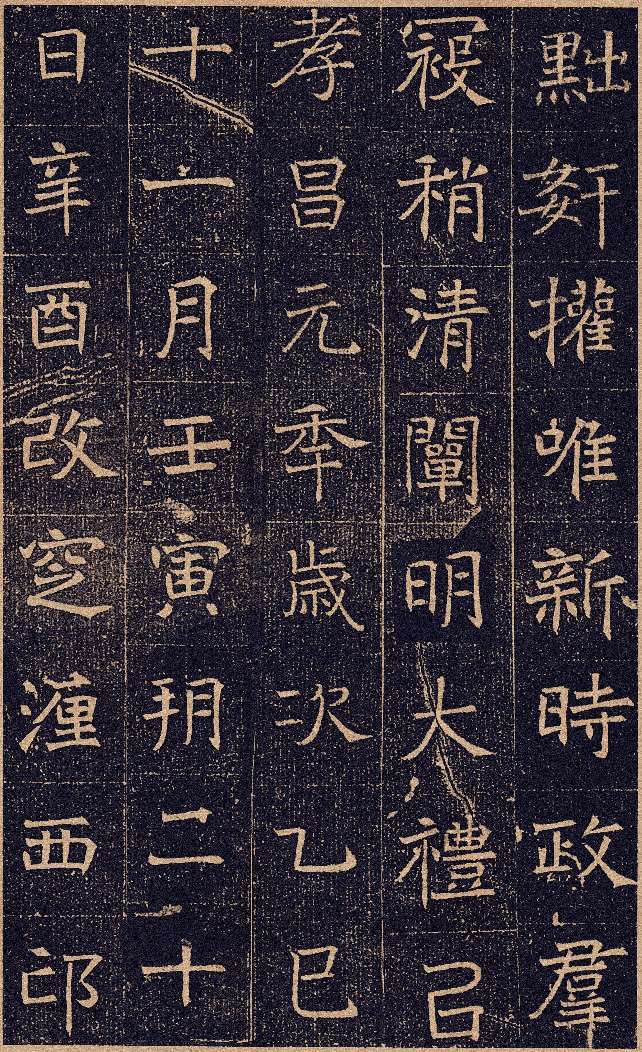 黜奸擢唯新時政羣
寇稍清闡明大禮㠯
孝昌元秊歲次乙巳
十一月壬寅朔二十
日辛酉改窆瀍西邙